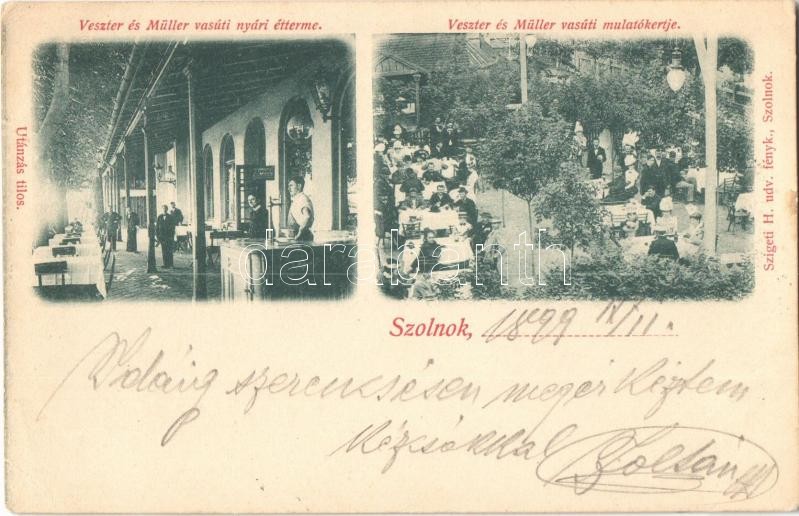 Veszter és Müller vasúti nyári étterme.
Veszter és Müller vasúti mulatókertje.
Utánzás tilos.
Szigeti H. udv. fényk., Szolnok.
darabanth
Szolnok, 1899 IV/11.
Idáig szerencsésen megérkeztem
kézcsókkal Zoltán